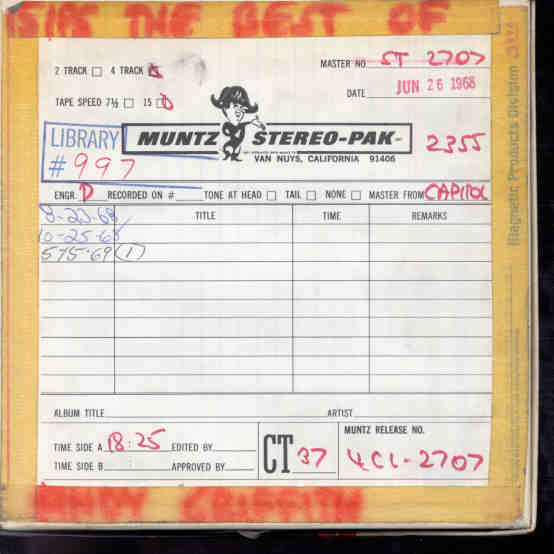 THE BEST OF
2 TRACK 4 TRACK
MASTER NO. ST 2707
DATE JUN 26 1968
TAPE SPEED 7½ 15
LIBRARY
# 997
MUNTZ STEREO-PAK
VAN NUYS, CALIFORNIA 91406
2355
Magnetic Products Division 3M
ENGR. D RECORDED ON # TONE AT HEAD TAIL NONE MASTER FROM CAPITOL
TITLE TIME REMARKS
8-23-68
10-25-68
5-15-69 (1)
ALBUM TITLE ARTIST
TIME SIDE A 18:25 EDITED BY
TIME SIDE B : APPROVED BY
CT 37
MUNTZ RELEASE NO.
4CL-2707
ANDY GRIFFITH